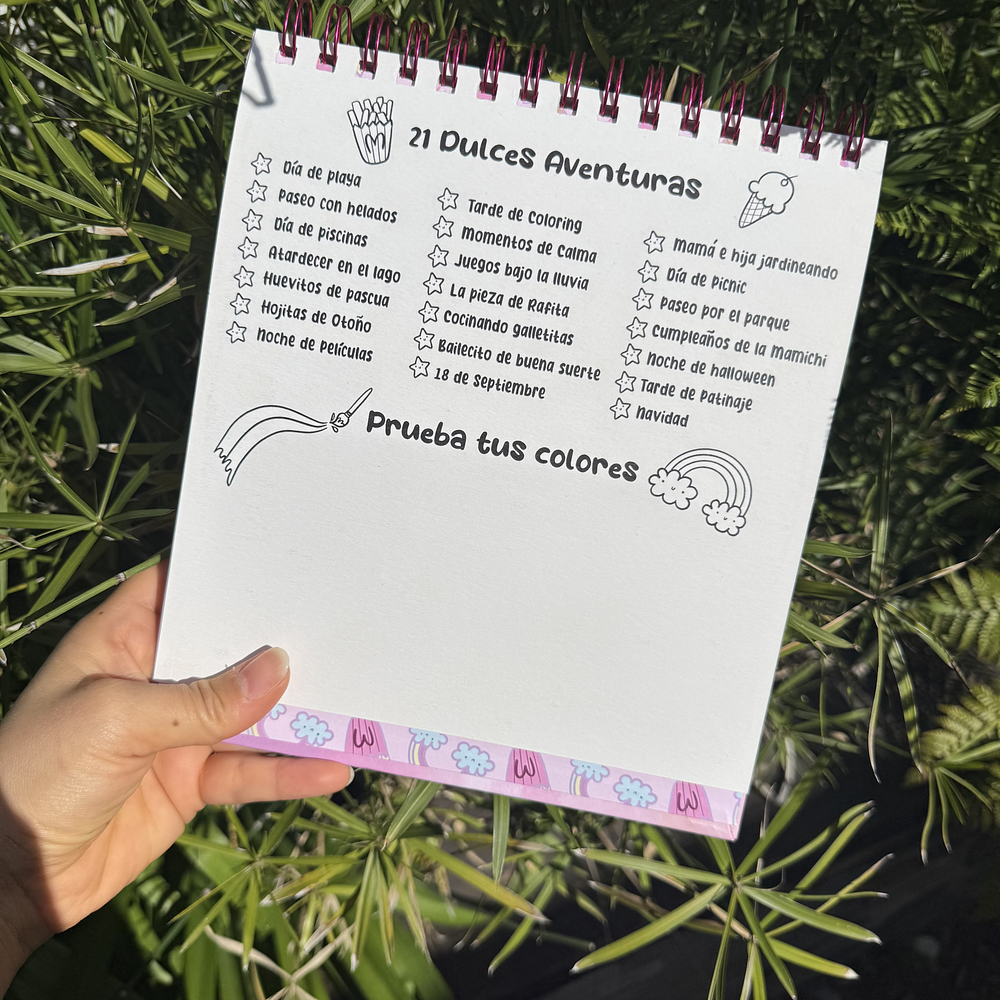 21 Dulces Aventuras
Día de playa
Paseo con helados
Día de piscinas
Atardecer en el lago
Huevitos de pascua
Hojitas de Otoño
Noche de Películas
Tarde de Coloring
Momentos de Calma
Juegos bajo la lluvia
La pieza de Rafita
Cocinando galletitas
Bailecito de buena suerte
18 de Septiembre
Mamá e hija jardineando
Día de Picnic
Paseo por el parque
Cumpleaños de la Mamichi
Noche de halloween
Tarde de Patinaje
Navidad
Prueba tus colores